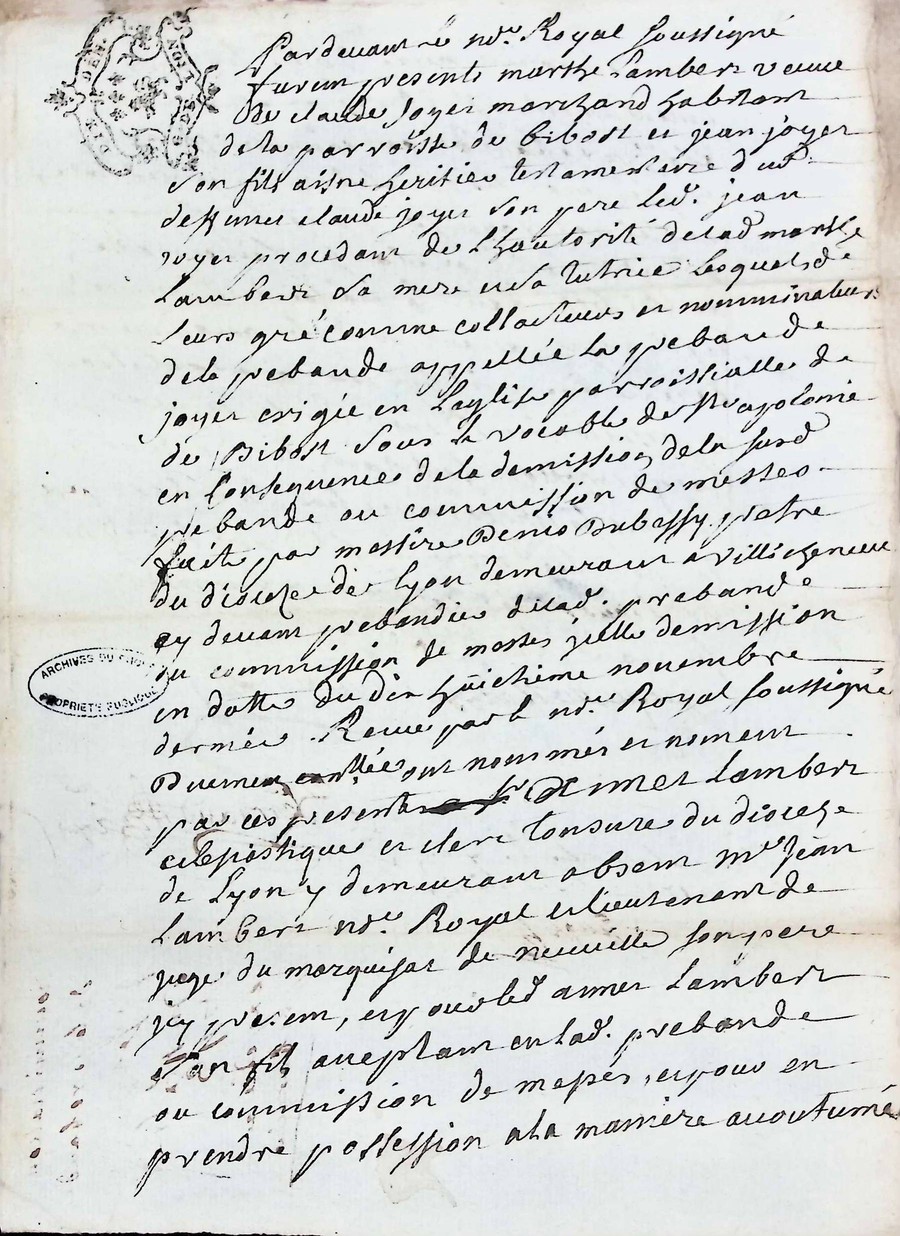 Pardevant le no.re Royal soussigné
furent presents marthe Lambert veuve
de claude Joyer marchand habitant
de la parroisse de bibost et jean joyer
son fils aisne heritier testamentaire dud.
deffunct claude joyer son pere led. jean
royer procedant de Lhautorité delad marthe
Lambert sa mere et sa tutrice Lesquels de
Leurs gré comme collacteurs et nomminateurs
dela prebande appellée La prebande
joyer erigée en Leglise parroissialle de
de Bibost sous le vocable de Ste apolonie
en Consequence dela demission dela susd
prebande ou commission de messes
fait par messire Denis Dubessy pretre
du dioceze de Lyon demeurant a villecheneve
cy devant prebandier delad. prebande
ou commission de messes jcelle demission
en datte du dix huictieme novembre
dernier Receue par le no.re Royal soussigné
Duement conllée ont nommés et noment
par ces presentes sr aimet Lambert
eclesiastique et clerc tonsure du diocese
de Lyon y demeurant absent me Jean
Lambert no.re Royal et lieutenent de
juge du marquisat de neuville son pere
jcy present, et pour led aimet Lambert
son fils acceptant en lad. prebande
ou commission de messes, et pour en
prendre possession a la maniere accoutumé
ARCHIVES DU
PROPRIETE PUBLIQUE